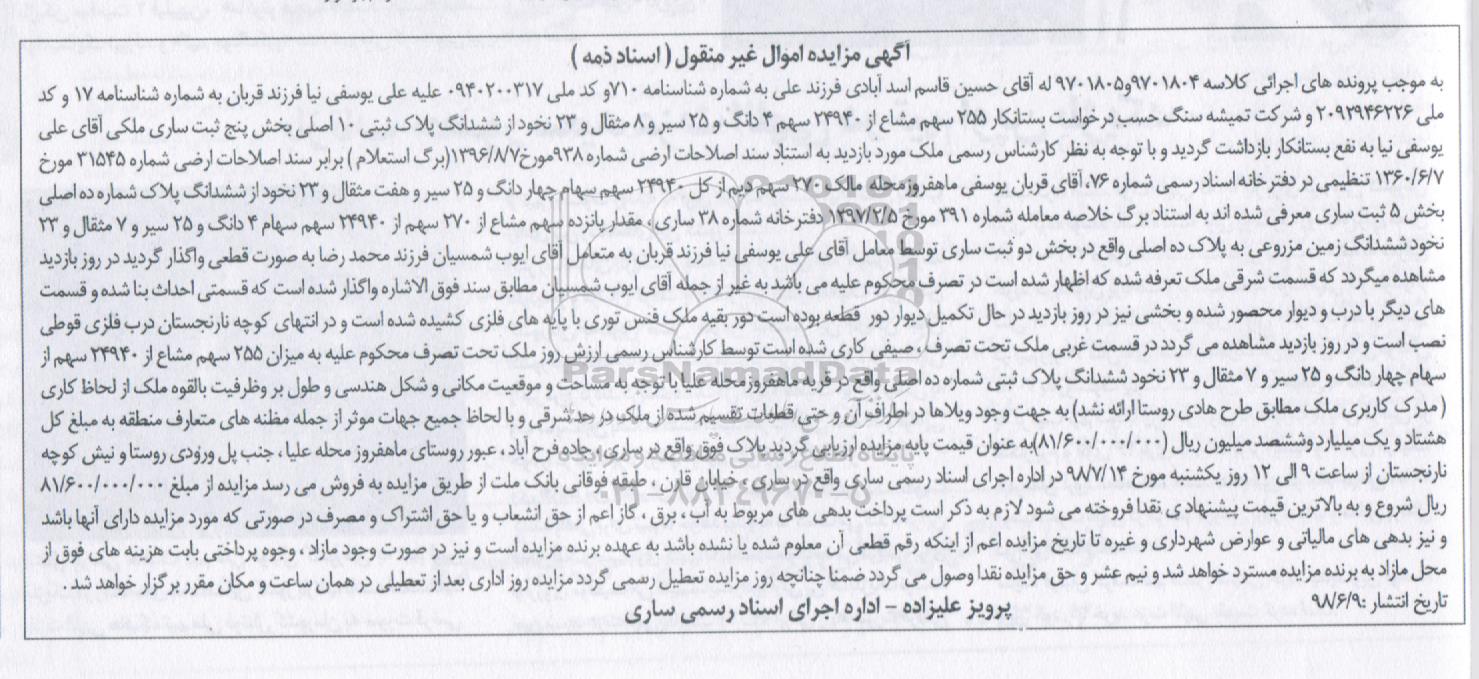 آگهی مزایده اموال غیر منقول ( اسناد ذمه )
به موجب پرونده های اجرائی کلاسه ۹۷۰۱۸۰۴و۹۷۰۱۸۰۵ له آقای حسین قاسم اسد آبادی فرزند علی به شماره شناسنامه ۷۱۰و کد ملی ۰۹۴۰۲۰۰۳۱۷ علیه علی یوسفی نیا فرزند قربان به شماره شناسنامه ۱۷ و کد
ملی ۲۰۹۲۹۴۶۲۲۶ و شرکت تمیشه سنگ حسب درخواست بستانکار ۲۵۵ سهم مشاع از ۲۴۹۴۰ سهم ۴ دانگ و ۲۵ سیر و ۸ مثقال و ۲۳ نخود از ششدانگ پلاک ثبتی ۱۰ اصلی بخش پنج ثبت ساری ملکی آقای علی
یوسفی نیا به نفع بستانکار بازداشت گردید و با توجه به نظر کارشناس رسمی ملک مورد بازدید به استناد سند اصلاحات ارضی شماره ۹۳۸مورخ۱۳۹۶/۸/۷(برگ استعلام ) برابر سند اصلاحات ارضی شماره ۳۱۵۴۵ مورخ
۱۳۶۰/۶/۷ تنظیمی در دفتر خانه اسناد رسمی شماره ۷۶، آقای قربان یوسفی ماهفروزمحله مالک ۲۷۰ سهم دیم از کل ۲۴۹۴۰ سهم سهام چهار دانگ و ۲۵ سیر و هفت مثقال و ۲۳ نخود از ششدانگ پلاک شماره ده اصلی
بخش ۵ ثبت ساری معرفی شده اند به استناد برگ خلاصه معامله شماره ۳۹۱ مورخ ۱۳۹۷/۲/۵ دفتر خانه شماره ۳۸ ساری ، مقدار پانزده سهم مشاع از ۲۷۰ سهم از ۲۴۹۴۰ سهم سهام ۴ دانگ و ۲۵ سیر و ۷ مثقال و ۲۳
نخود ششدانگ زمین مزروعی به پلاک ده اصلی واقع در بخش دو ثبت ساری توسط معامل آقای علی یوسفی نیا فرزند قربان به متعامل آقای ایوب شمسیان فرزند محمد رضا به صورت قطعی واگذار گردید در روز بازدید
مشاهده میگردد که قسمت شرقی ملک تعرفه شده که اظهار شده است در تصرف محکوم علیه می باشد به غیر از جمله آقای ایوب شمسیان مطابق سند فوق الاشاره واگذار شده است که قسمتی احداث بنا شده و قسمت
های دیگر با درب و دیوار محصور شده و بخشی نیز در روز بازدید در حال تکمیل دیوار دور قطعه بوده است دور بقیه ملک فنس توری با پایه های فلزی کشیده شده است و در انتهای کوچه نارنجستان درب فلزی قوطی
نصب است و در روز بازدید مشاهده می گردد در قسمت غربی ملک تحت تصرف ، صیفی کاری شده است توسط کارشناس رسمی ارزش روز ملک تحت تصرف محکوم علیه به میزان ۲۵۵ سهم مشاع از ۲۴۹۴۰ سهم از
سهام چهار دانگ و ۲۵ سیر و ۷ مثقال و ۲۳ نخود ششدانگ پلاک ثبتی شماره ده اصلی واقع در قریه ماهفروزمحله علیا با توجه به مساحت و موقعیت مکانی و شکل هندسی و طول بر وظرفیت بالقوه ملک از لحاظ کاری
( مدرک کاربری ملک مطابق طرح هادی روستا ارائه نشد) به جهت وجود ویلاها در اطراف آن و حتی قطعات تقسیم شده از ملک در حد شرقی و با لحاظ جمیع جهات موثر از جمله مظنه های متعارف منطقه به مبلغ کل
هشتاد و یک میلیارد وششصد میلیون ریال (۸۱/۶۰۰/۰۰۰/۰۰۰)به عنوان قیمت پایه مزایده ارزیابی گردید پلاک فوق واقع در ساری ، جاده فرح آباد ، عبور روستای ماهفروز محله علیا ، جنب پل ورودی روستا و نبش کوچه
نارنجستان از ساعت ۹ الی ۱۲ روز یکشنبه مورخ ۹۸/۷/۱۴ در اداره اجرای اسناد رسمی ساری واقع در ساری ، خیابان قارن ، طبقه فوقانی بانک ملت از طریق مزایده به فروش می رسد مزایده از مبلغ ۸۱/۶۰۰/۰۰۰/۰۰۰
ریال شروع و به بالاترین قیمت پیشنهادی نقدا فروخته می شود لازم به ذکر است پرداخت بدهی های مربوط به آب ، برق ، گاز اعم از حق انشعاب و یا حق اشتراک و مصرف در صورتی که مورد مزایده دارای آنها باشد
و نیز بدهی های مالیاتی و عوارض شهرداری و غیره تا تاریخ مزایده اعم از اینکه رقم قطعی آن معلوم شده یا نشده باشد به عهده برنده مزایده است و نیز در صورت وجود مازاد ، وجوه پرداختی بابت هزینه های فوق از
محل مازاد به برنده مزایده مسترد خواهد شد و نیم عشر و حق مزایده نقدا وصول می گردد ضمنا چنانچه روز مزایده تعطیل رسمی گردد مزایده روز اداری بعد از تعطیلی در همان ساعت و مکان مقرر برگزار خواهد شد .
تاریخ انتشار :۹۸/۶/۹
پرویز علیزاده - اداره اجرای اسناد رسمی ساری
ParsNamadData
۰۲۱-۸۸۳۴۹۶۷۰-۵